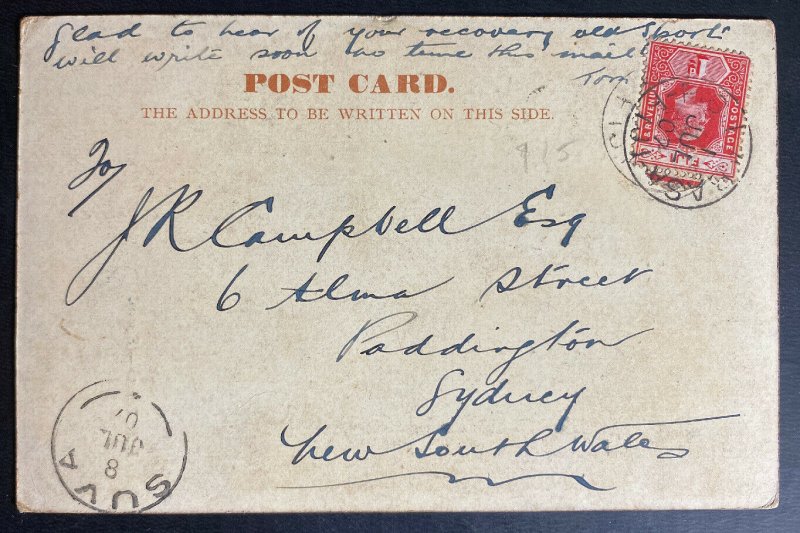 Glad to hear of your recovery old Sport
will write soon no time this mail
Tom
POST CARD.
THE ADDRESS TO BE WRITTEN ON THIS SIDE.
$15
To
J R Campbell Esq
6 Alma Street
Paddington
Sydney
New South Wales
POSTAGE
& REVENUE
FIJI
SUVA
8
JUL
07